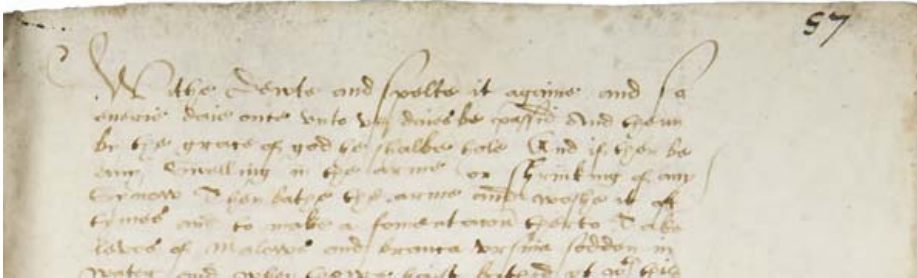 57
Withe Dewte and spelte it againe and so
euerie daie once vnto vij daies be passed And then
by the grace of god he shalbe hole And if ther be
eny swelling in the arme or shrinking of any
Synow Then bathe the arme and washe it of
tymes and to make a fomentacion therto Take
leves of Malows and branca vrsina sodden in
water and when